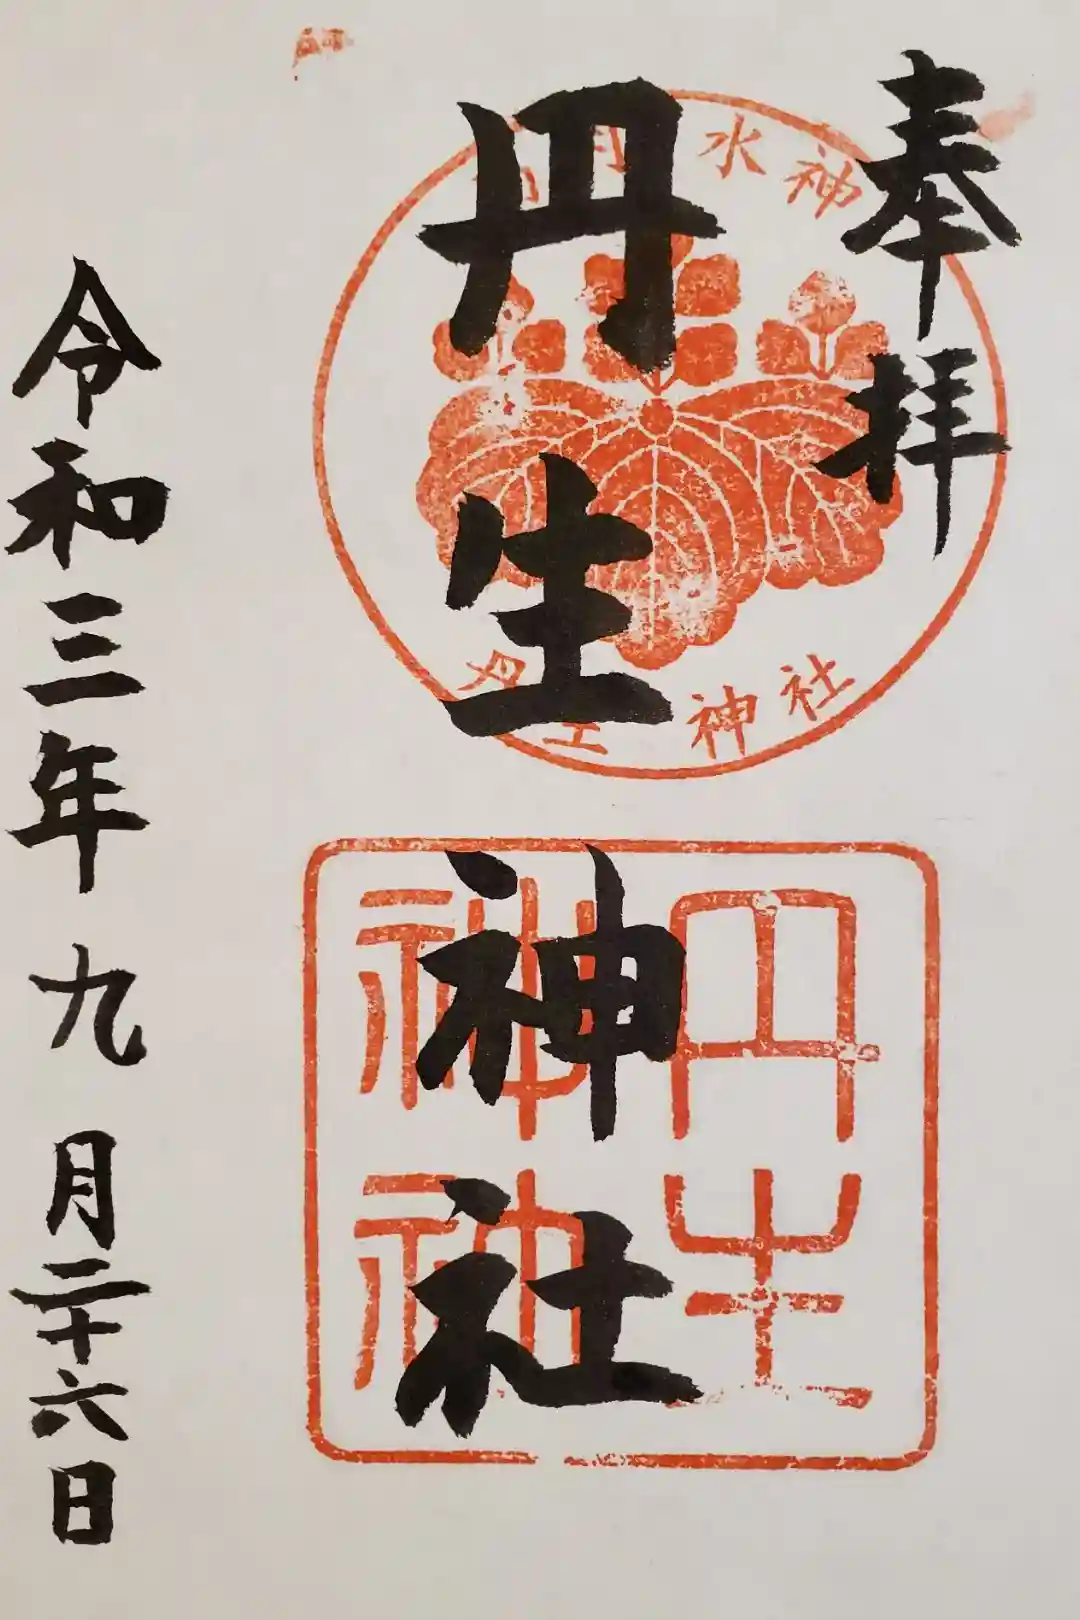 奉拝
丹生神社
水神
丹生神社
丹生
神社
令和三年九月二十六日